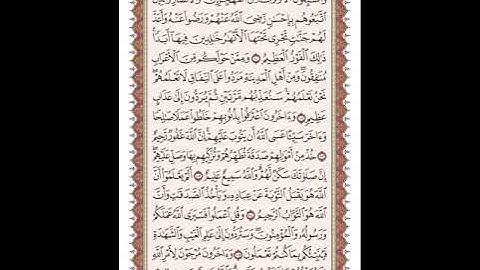 وَالسَّٰبِقُونَ الْأَوَّلُونَ مِنَ الْمُهَٰجِرِينَ وَالْأَنصَارِ وَالَّذِينَ
اتَّبَعُوهُم بِإِحْسَٰنٍ رَّضِيَ اللَّهُ عَنْهُمْ وَرَضُوا عَنْهُ وَأَعَدَّ
لَهُمْ جَنَّٰتٍ تَجْرِي تَحْتَهَا الْأَنْهَٰرُ خَٰلِدِينَ فِيهَا أَبَدًا
ذَٰلِكَ الْفَوْزُ الْعَظِيمُ ۝ وَمِمَّنْ حَوْلَكُم مِّنَ الْأَعْرَابِ
مُنَٰفِقُونَ وَمِنْ أَهْلِ الْمَدِينَةِ مَرَدُوا عَلَى النِّفَاقِ لَا تَعْلَمُهُمْ
نَحْنُ نَعْلَمُهُمْ سَنُعَذِّبُهُم مَّرَّتَيْنِ ثُمَّ يُرَدُّونَ إِلَىٰ عَذَابٍ
عَظِيمٍ ۝ وَءَاخَرُونَ اعْتَرَفُوا بِذُنُوبِهِمْ خَلَطُوا عَمَلًا صَٰلِحًا
وَءَاخَرَ سَيِّئًا عَسَى اللَّهُ أَن يَتُوبَ عَلَيْهِمْ إِنَّ اللَّهَ غَفُورٌ رَّحِيمٌ
۝ خُذْ مِنْ أَمْوَٰلِهِمْ صَدَقَةً تُطَهِّرُهُمْ وَتُزَكِّيهِم بِهَا وَصَلِّ عَلَيْهِمْ
إِنَّ صَلَوٰتَكَ سَكَنٌ لَّهُمْ وَاللَّهُ سَمِيعٌ عَلِيمٌ ۝ أَلَمْ يَعْلَمُوا أَنَّ
اللَّهَ هُوَ يَقْبَلُ التَّوْبَةَ عَنْ عِبَادِهِ وَيَأْخُذُ الصَّدَقَٰتِ وَأَنَّ
اللَّهَ هُوَ التَّوَّابُ الرَّحِيمُ ۝ وَقُلِ اعْمَلُوا فَسَيَرَى اللَّهُ عَمَلَكُمْ
وَرَسُولُهُ وَالْمُؤْمِنُونَ وَسَتُرَدُّونَ إِلَىٰ عَٰلِمِ الْغَيْبِ وَالشَّهَٰدَةِ
فَيُنَبِّئُكُم بِمَا كُنتُمْ تَعْمَلُونَ ۝ وَءَاخَرُونَ مُرْجَوْنَ لِأَمْرِ اللَّهِ